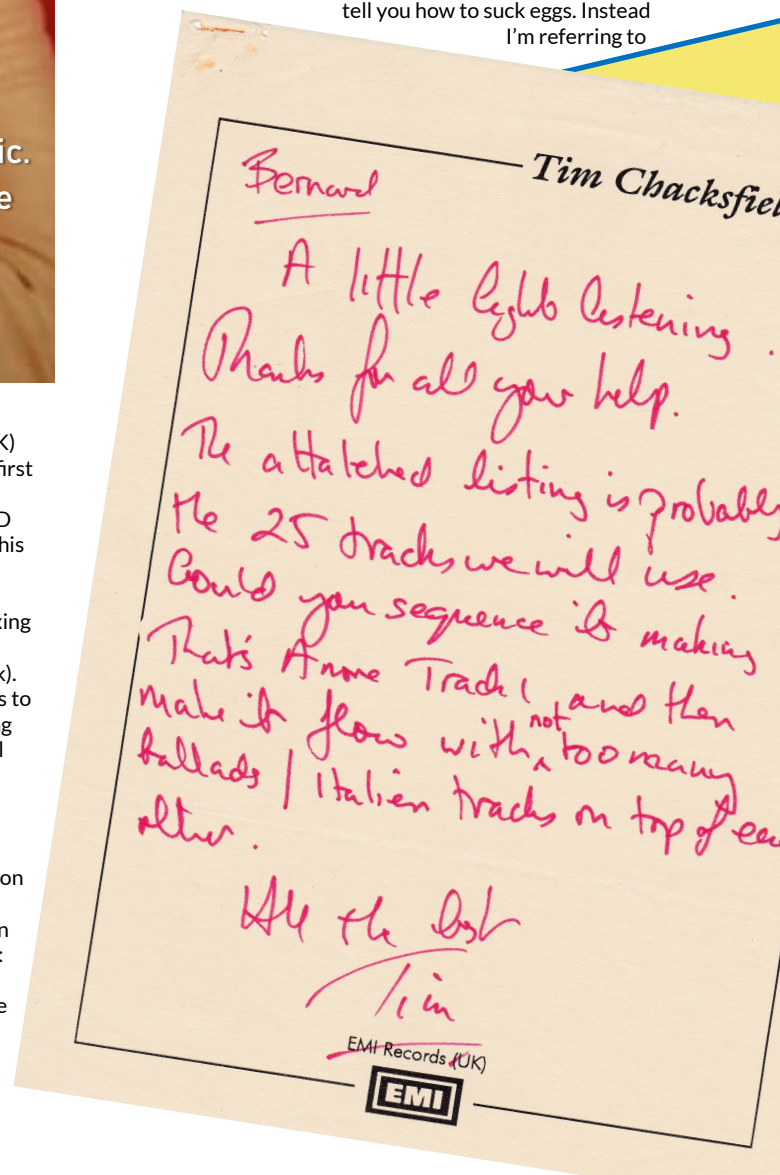 tell you how to suck eggs. Instead
I'm referring to
ic.
e
K)
first
D
his
king
k).
s to
ng
l
on
n
:
e
Tim Chacksfiel
Bernard
A little light listening.
Thanks for all your help.
The attatched listing is probably
the 25 tracks we will use.
Could you sequence it making
That's Amore Track 1, and then
make it flow with not too many
ballads / Italien tracks on top of ea
other.
All the best
Tim
EMI Records (UK)
EMI